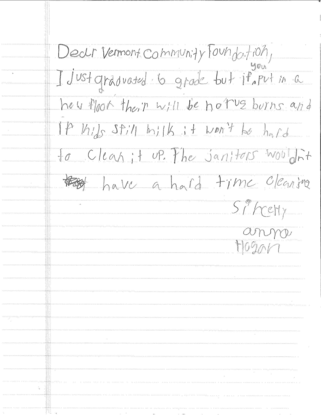 Dear Vermont Community Foundation,
you
I Just graduated 6 grade but if put in a
new floor their will be no rug burns and
If kids spill milk it won't be hard
to clean it up. The janiters wouldn't
have a hard time cleaning
Sincelly
anna
Hogan